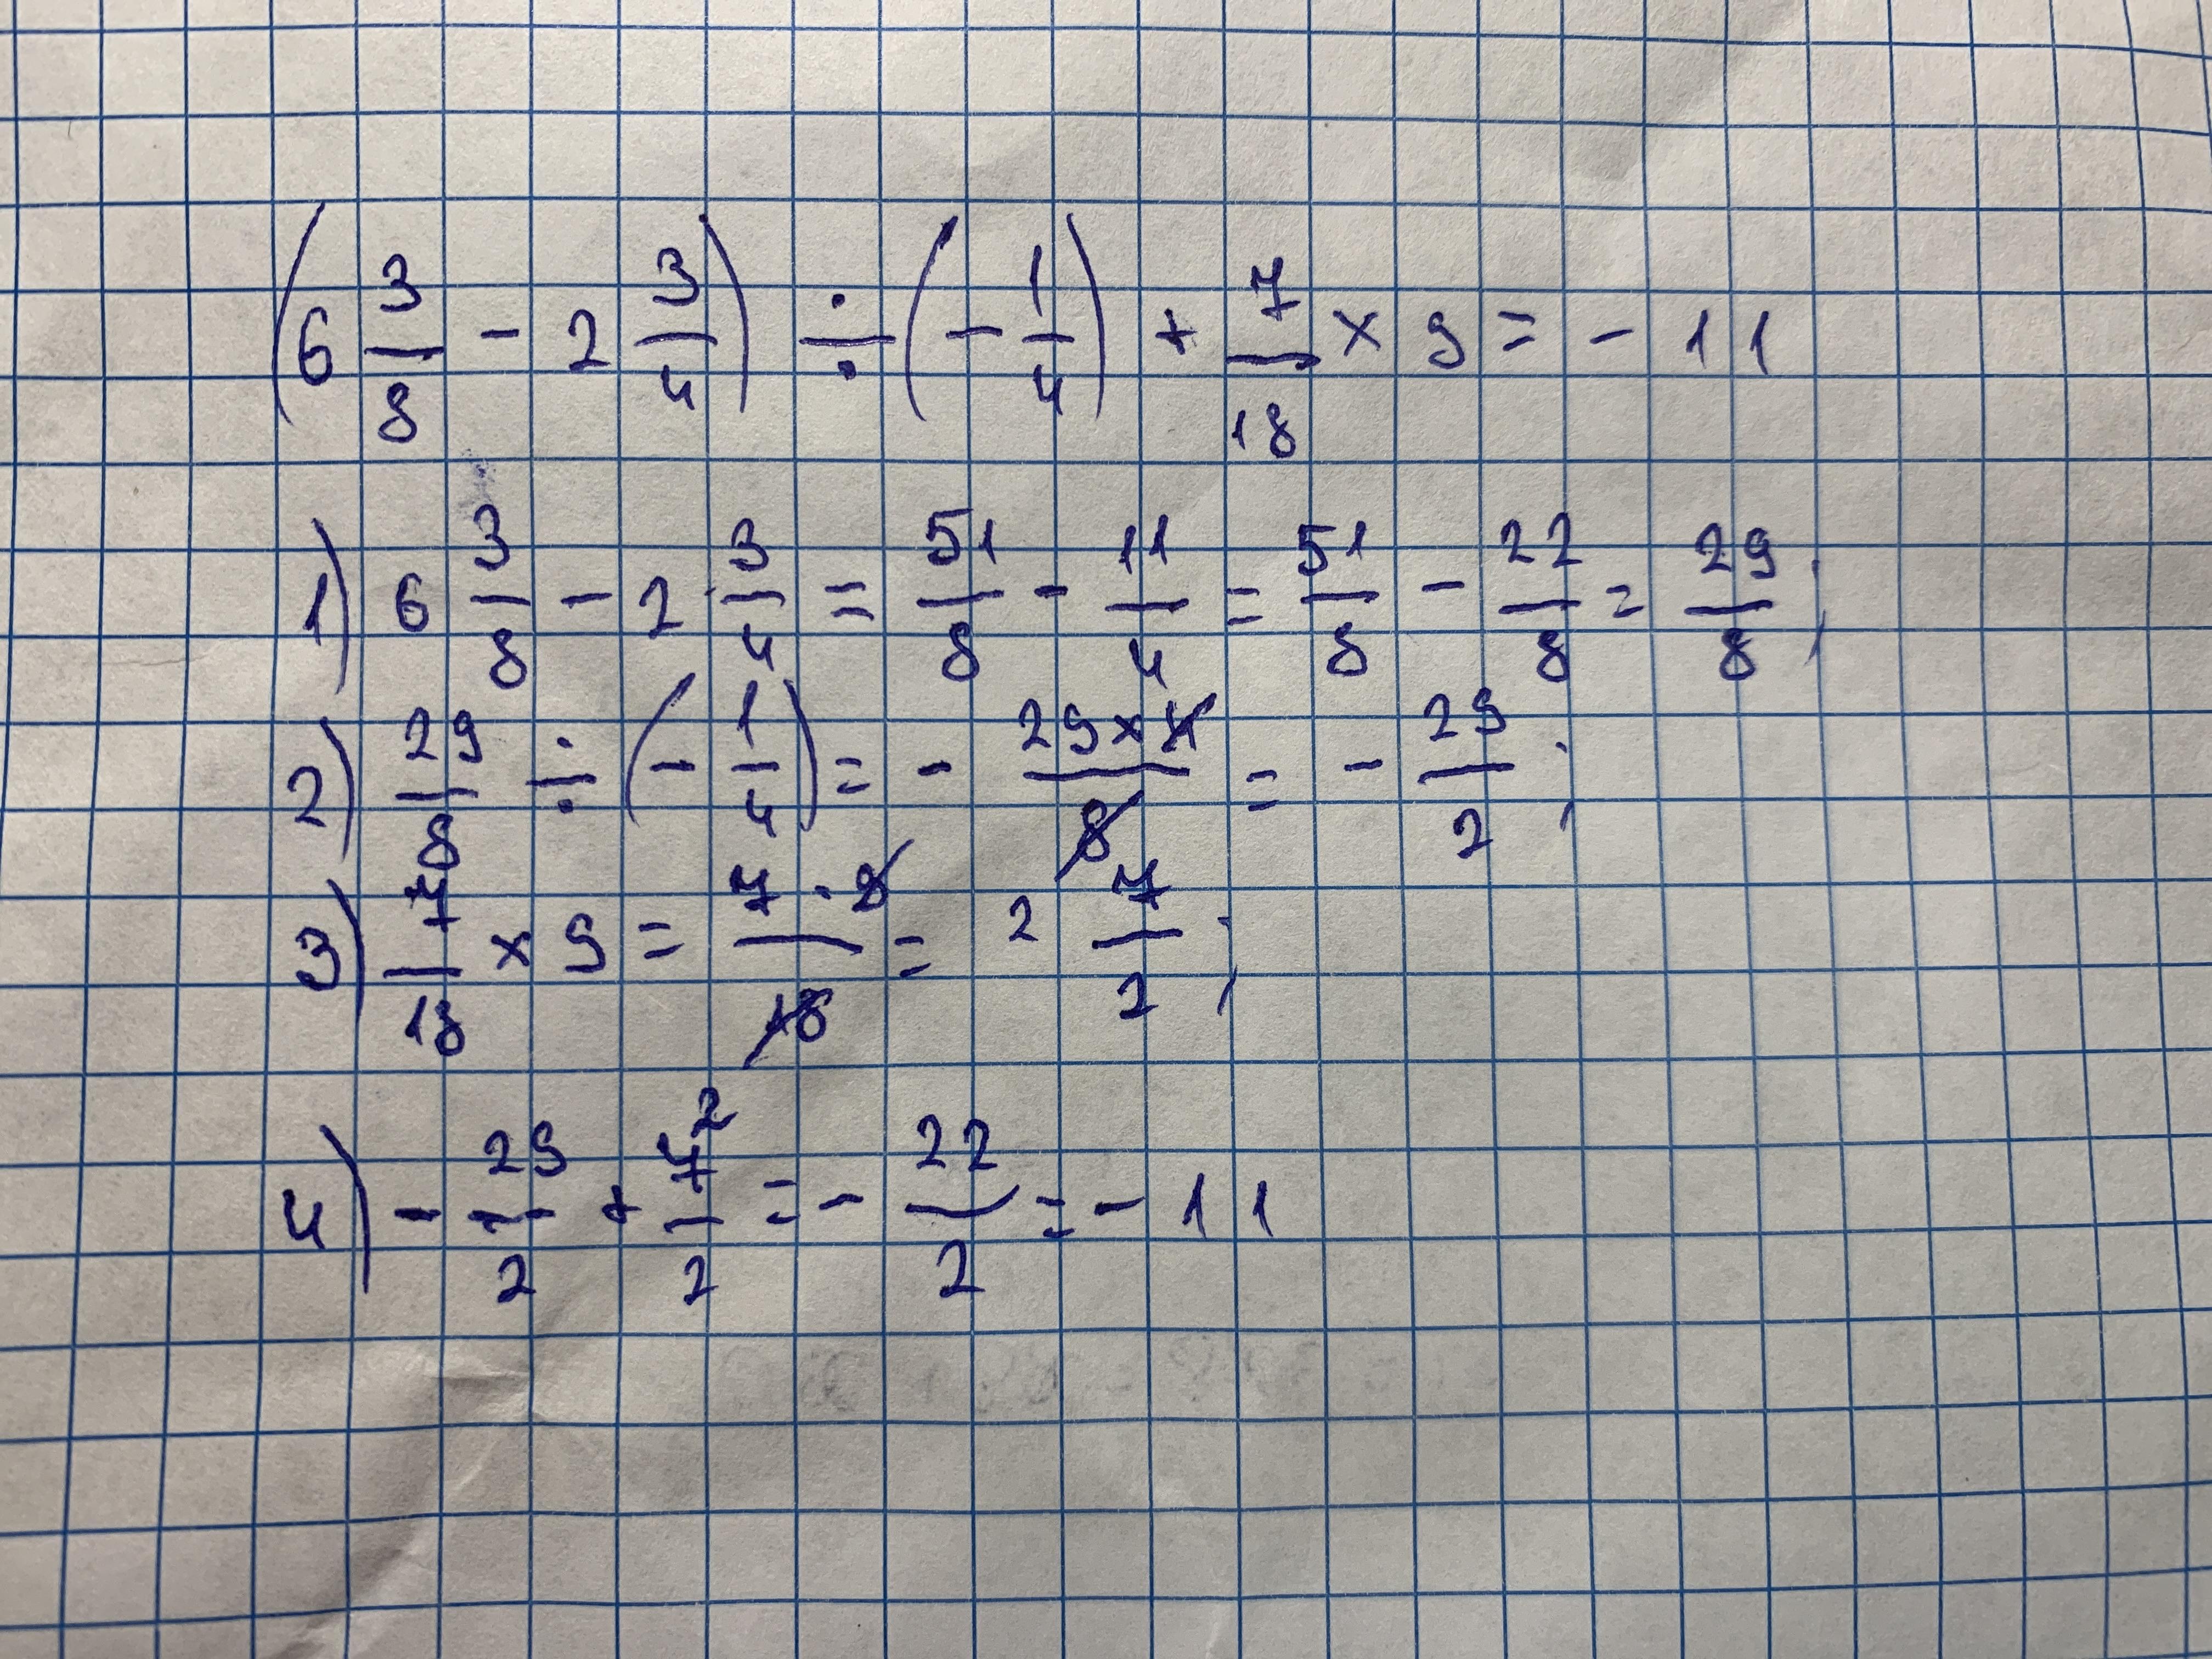 (6 3/8 - 2 3/4) ÷ (- 1/4) + 7/18 × 9 = - 11
1) 6 3/8 - 2 3/4 = 51/8 - 11/4 = 51/8 - 22/8 = 29/8;
2) 29/8 ÷ (- 1/4) = - 29×4/8 = - 29/2;
3) 7/18 × 9 = 7·9/18 = 2 7/2;
4) - 29/2 + 7²/2 = - 22/2 = - 11